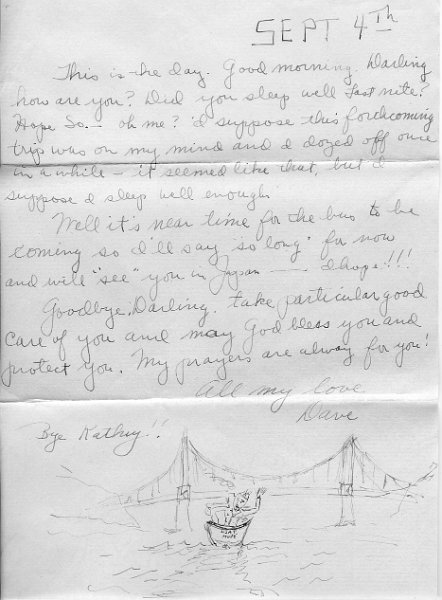 SEPT 4Th
This is the day. Good morning, Darling
how are you? Did you sleep well last nite?
Hope So.— oh me? I'd suppose this forthcoming
trip was on my mind and I dozed off once
in a while — it seemed like that, but I
suppose I sleep well enough.
Well it's near time for the bus to be
coming so I'll say "so long" for now
and will "see" you in Japan —— I hope!!!
Goodbye, Darling. take particular good
care of you and may God bless you and
protect you. My prayers are alway for you!
All my love
Dave
Bye Kathy!!